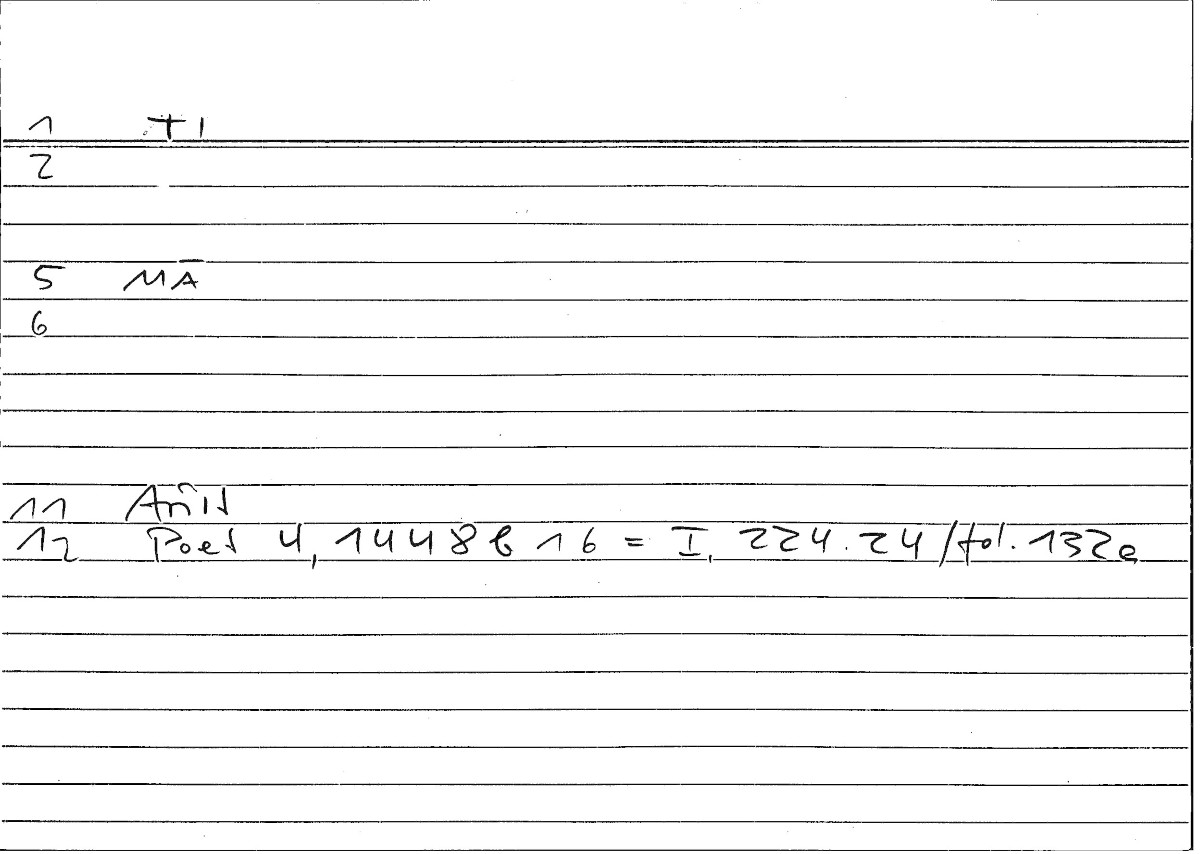 1 TI
2
5 MĀ
6
11 Arist
12 Poet 4, 1448b16 = I, 224.24/fol. 132a